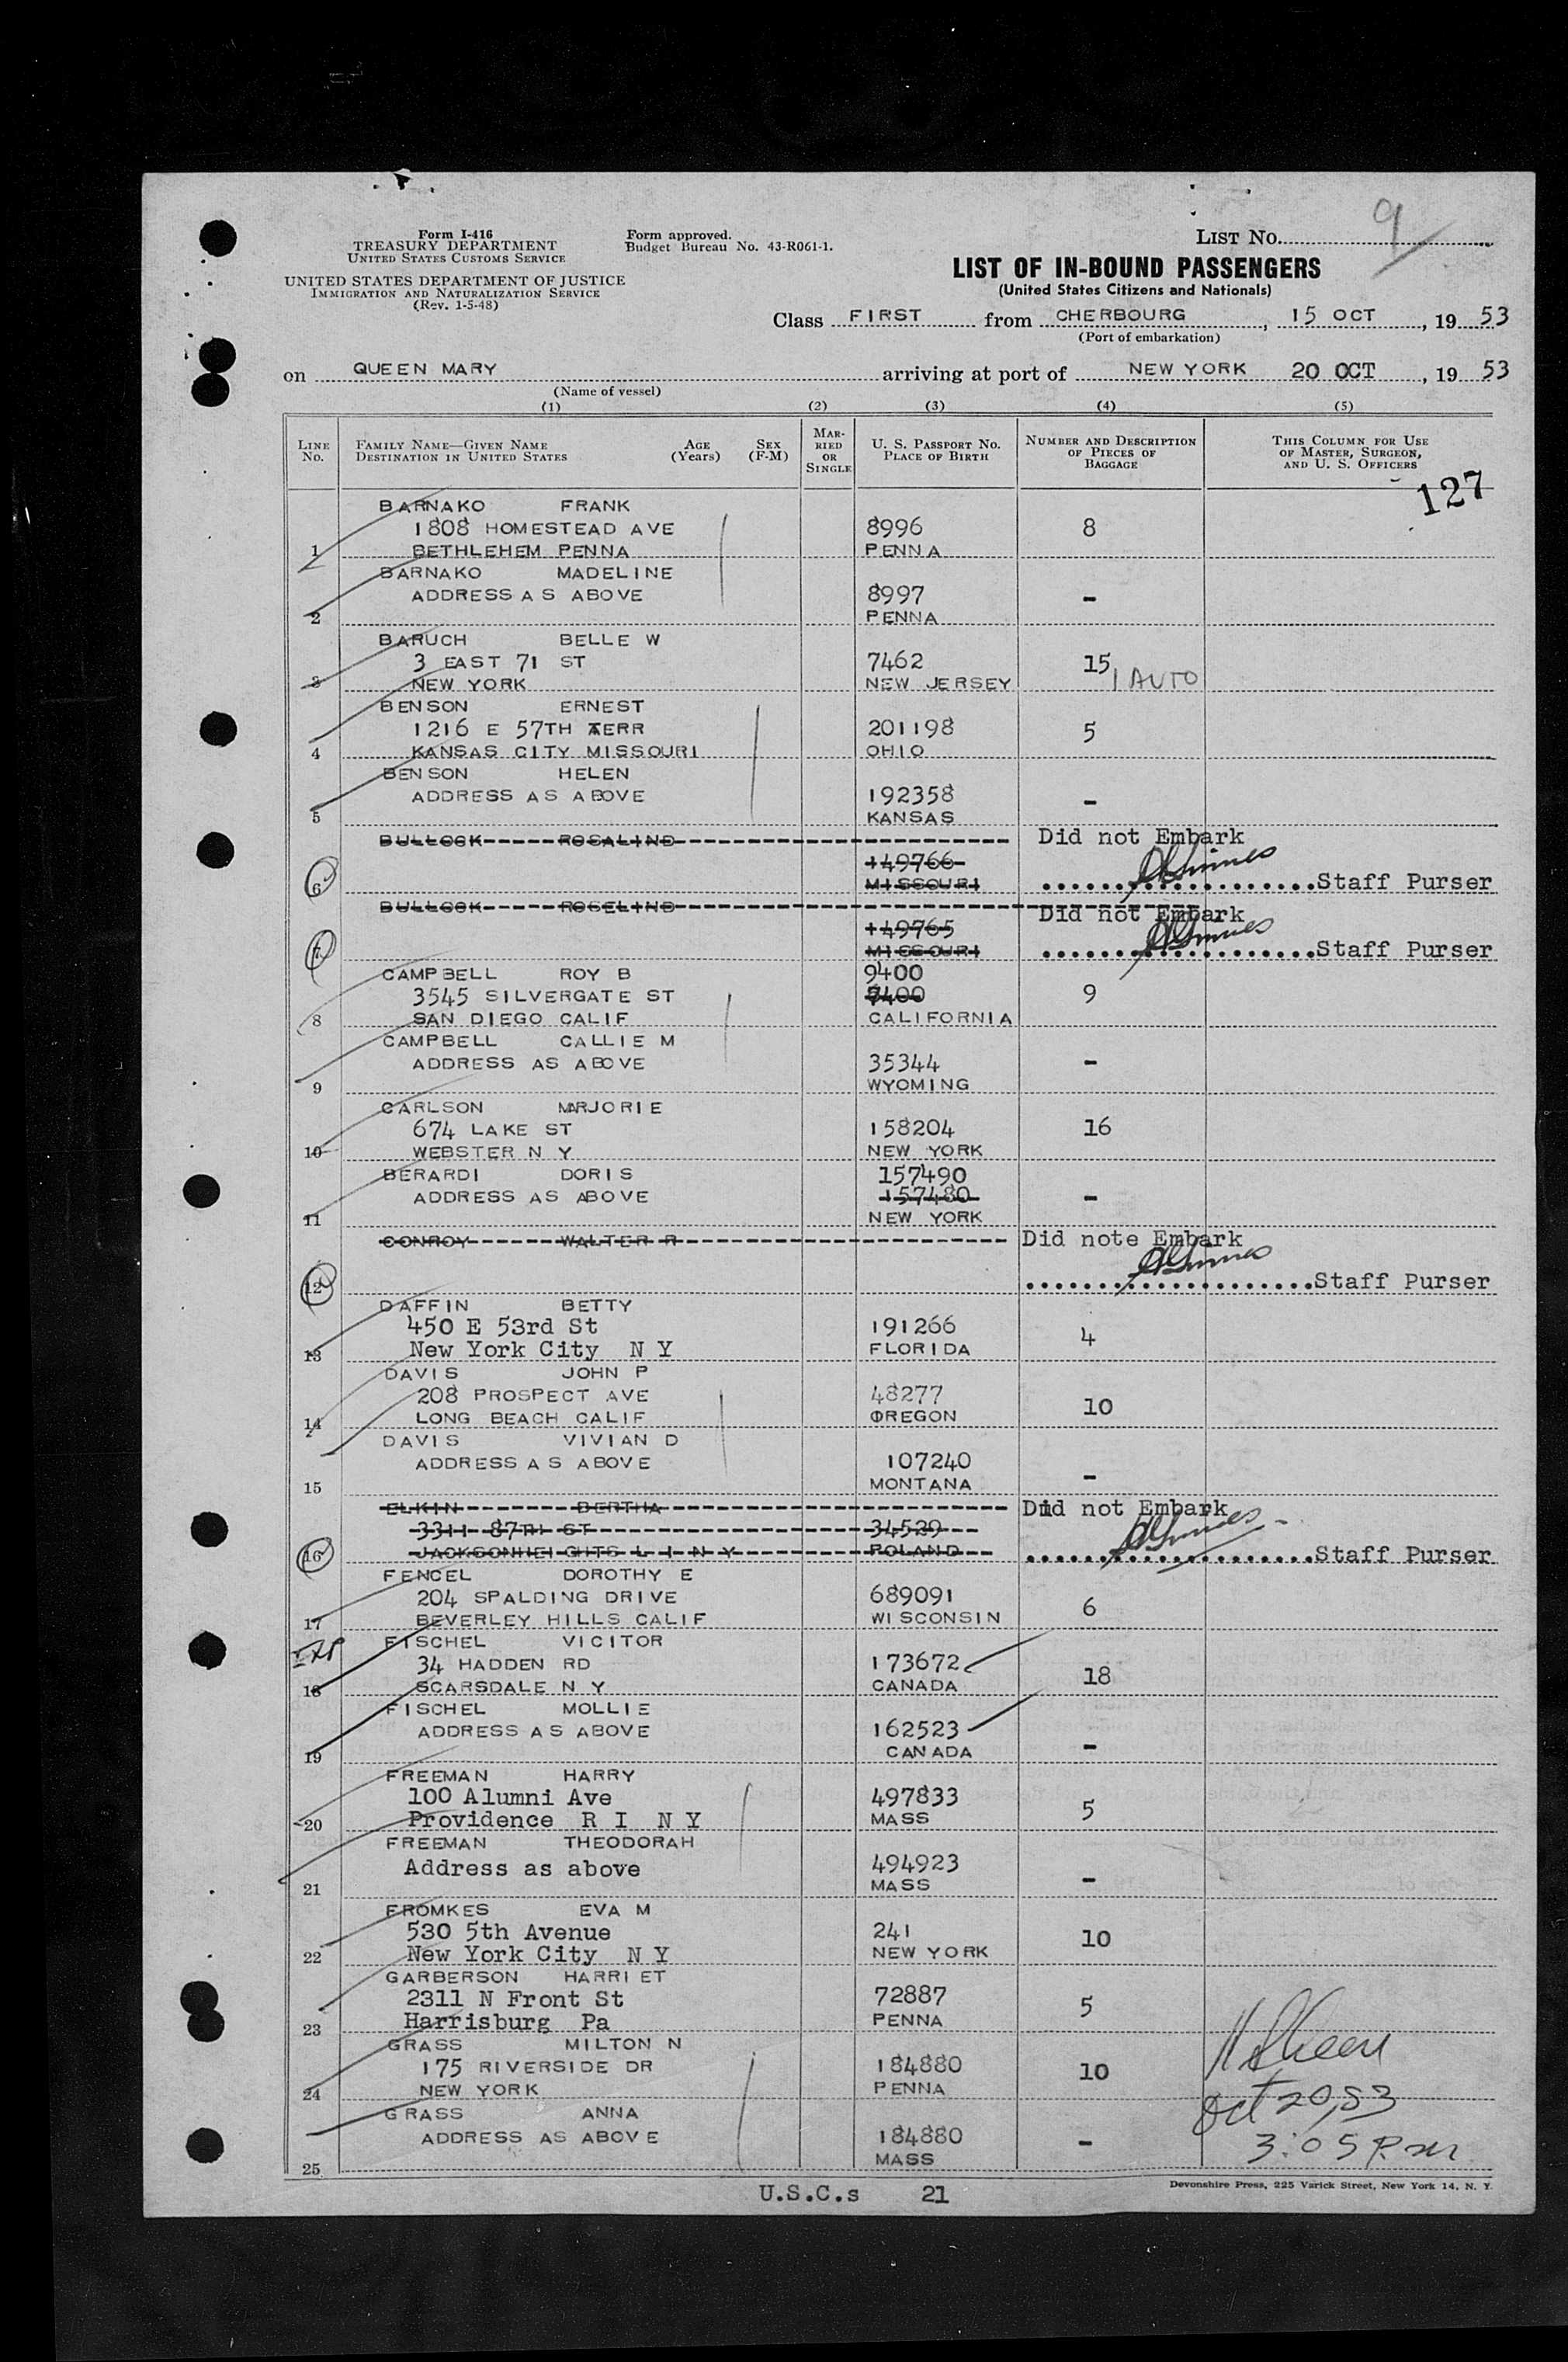 Form I-416
TREASURY DEPARTMENT
UNITED STATES CUSTOMS SERVICE
UNITED STATES DEPARTMENT OF JUSTICE
IMMIGRATION AND NATURALIZATION SERVICE
(Rev. 1-5-48)
Form approved.
Budget Bureau No. 43-R061-1.
LIST No. 9
LIST OF IN-BOUND PASSENGERS
(United States Citizens and Nationals)
Class FIRST from CHERBOURG, 15 OCT, 19 53
(Port of embarkation)
on QUEEN MARY arriving at port of NEW YORK 20 OCT, 19 53
(Name of vessel)
(1) (2) (3) (4) (5)
LINE No. FAMILY NAME—GIVEN NAME DESTINATION IN UNITED STATES AGE (Years) SEX (F-M) MARRIED OR SINGLE U. S. PASSPORT No. PLACE OF BIRTH NUMBER AND DESCRIPTION OF PIECES OF BAGGAGE THIS COLUMN FOR USE OF MASTER, SURGEON, AND U. S. OFFICERS
127
BARNAKO FRANK
1808 HOMESTEAD AVE 8996 8
1 BETHLEHEM PENNA PENNA
BARNAKO MADELINE
ADDRESS AS ABOVE 8997 -
2 PENNA
BARUCH BELLE W
3 EAST 71 ST 7462 15
3 NEW YORK NEW JERSEY 1 AUTO
BENSON ERNEST
1216 E 57TH TERR 201198 5
4 KANSAS CITY MISSOURI OHIO
BENSON HELEN
ADDRESS AS ABOVE 192358 -
5 KANSAS
BULLOCK ROSALIND Did not Embark
149766
6 MISSOURI Staff Purser
BULLOCK ROSELIND Did not Embark
149765
7 MISSOURI Staff Purser
CAMPBELL ROY B 9400
3545 SILVERGATE ST 9
8 SAN DIEGO CALIF CALIFORNIA
CAMPBELL CALLIE M
ADDRESS AS ABOVE 35344 -
9 WYOMING
CARLSON MARJORIE
674 LAKE ST 158204 16
10 WEBSTER N Y NEW YORK
BERARDI DORIS 157490
ADDRESS AS ABOVE 157480 -
11 NEW YORK
CONROY WALTER R Did note Embark
12 Staff Purser
DAFFIN BETTY
450 E 53rd St 191266 4
13 New York City N Y FLORIDA
DAVIS JOHN P
208 PROSPECT AVE 48277 10
14 LONG BEACH CALIF OREGON
DAVIS VIVIAN D
ADDRESS AS ABOVE 107240 -
15 MONTANA
ELKIN BERTHA Did not Embark
3311 87TH ST 34529
16 JACKSONHEIGHTS L I N Y POLAND Staff Purser
FENCEL DOROTHY E
204 SPALDING DRIVE 689091 6
17 BEVERLEY HILLS CALIF WISCONSIN
FISCHEL VICITOR
34 HADDEN RD 173672 18
18 SCARSDALE N Y CANADA
FISCHEL MOLLIE
ADDRESS AS ABOVE 162523 -
19 CANADA
FREEMAN HARRY
100 Alumni Ave 497833 5
20 Providence R I N Y MASS
FREEMAN THEODORAH
Address as above 494923 -
21 MASS
FROMKES EVA M
530 5th Avenue 241 10
22 New York City N Y NEW YORK
GARBERSON HARRIET
2311 N Front St 72887 5
23 Harrisburg Pa PENNA
GRASS MILTON N
175 RIVERSIDE DR 184880 10
24 NEW YORK PENNA
Oct 20, 53
GRASS ANNA
ADDRESS AS ABOVE 184880 - 3:05 P.m
25 MASS
U.S.C.s 21
Devonshire Press, 225 Varick Street, New York 14, N. Y.